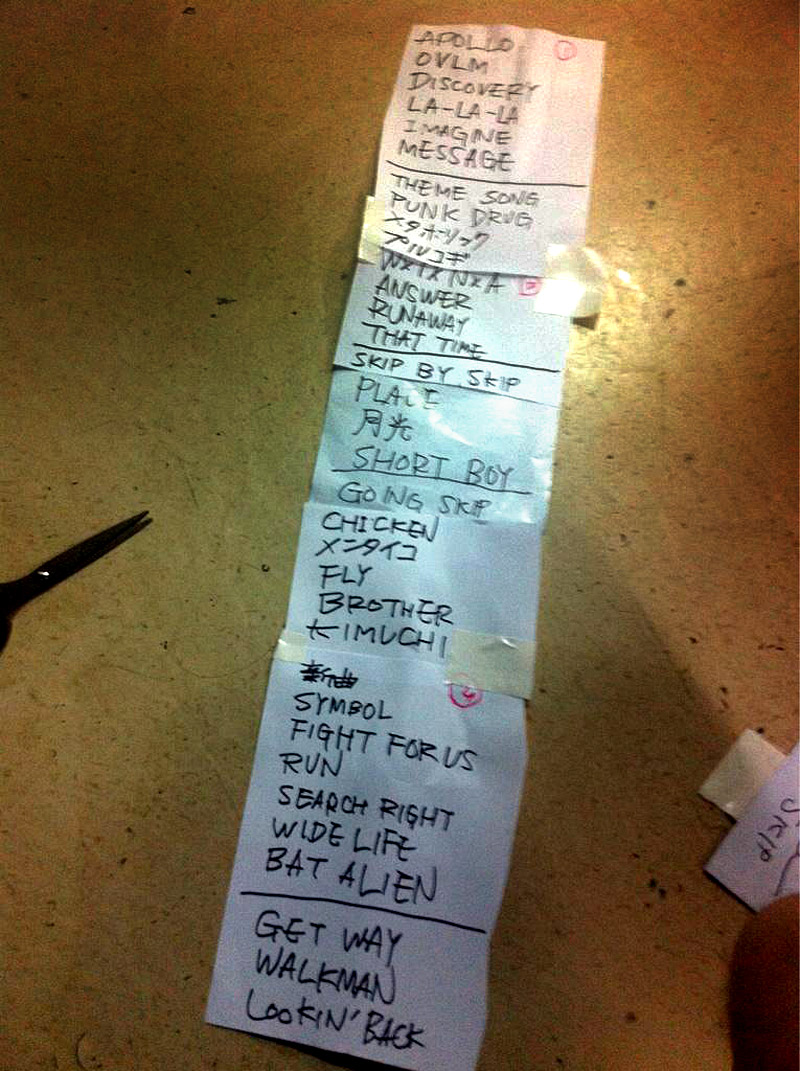 APOLLO ①
OVLM
DISCOVERY
LA-LA-LA
IMAGINE
MESSAGE
THEME SONG
PUNK DRUG
メタボリック
プルコギ
WxIxNxA
ANSWER
RUNAWAY
THAT TIME
SKIP BY SKIP
PLACE
月光
SHORT BOY
GOING SKIP
CHICKEN
メンタイコ
FLY
BROTHER
KIMUCHI
新曲
SYMBOL
FIGHT FOR US
RUN
SEARCH RIGHT
WIDE LIFE
BAT ALIEN
GET WAY
WALKMAN
LOOKIN' BACK
SKIP